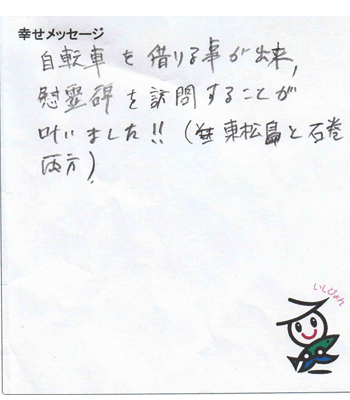 幸せメッセージ
自転車を借りる事が出来,
慰霊碑を訪問することが
叶いました!! (東松島と石巻
両方)
いしぴょん